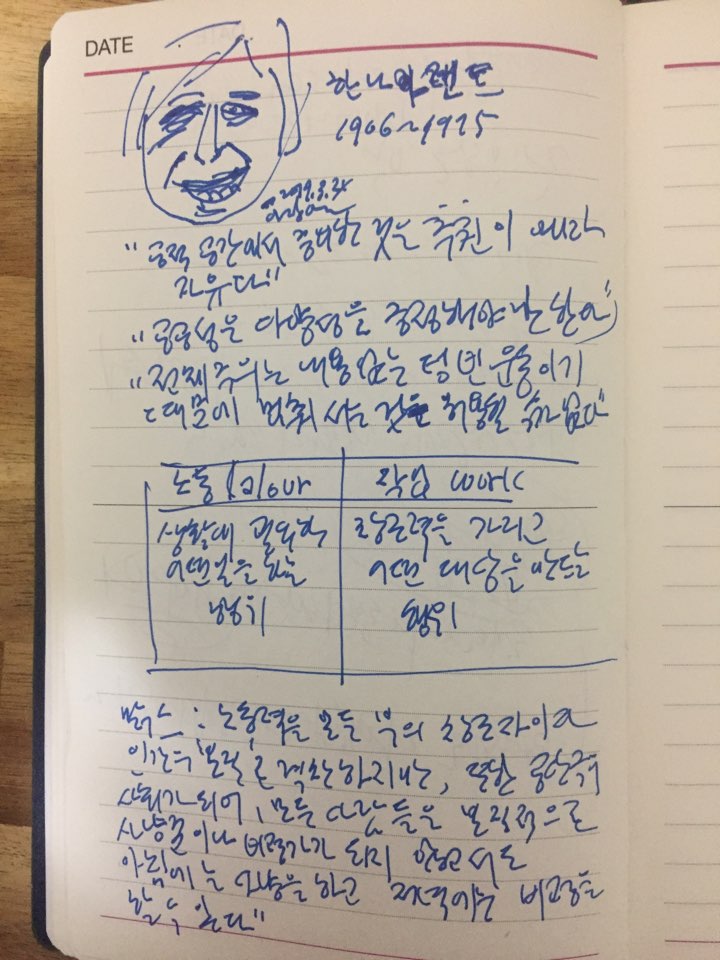 DATE
한나 아렌트
1906~1975
"공적 공간에서 중대한 것은 축권이 아니라
자유다"
"공공성은 다양성을 긍정해야만 한다"
"전체주의는 내용없는 텅 빈 운동이기
때문에 멈춰 서는 것을 허용할 수가 없다"
노동 labour
작업 work
생활에 필요한
어떤 일을 하는
행위
창조력을 가지고
어떤 대상을 만드는
행위
맑스 : 노동력을 모든 부의 창조자이자
인간의 '본질'로 격찬하지만,
사회가 되어, 모든 사람들은 본질적으로
사냥꾼이나 비평가가 되지 않고서도
아침에는 사냥을 하고 저녁에는 비평을
할 수 있다"